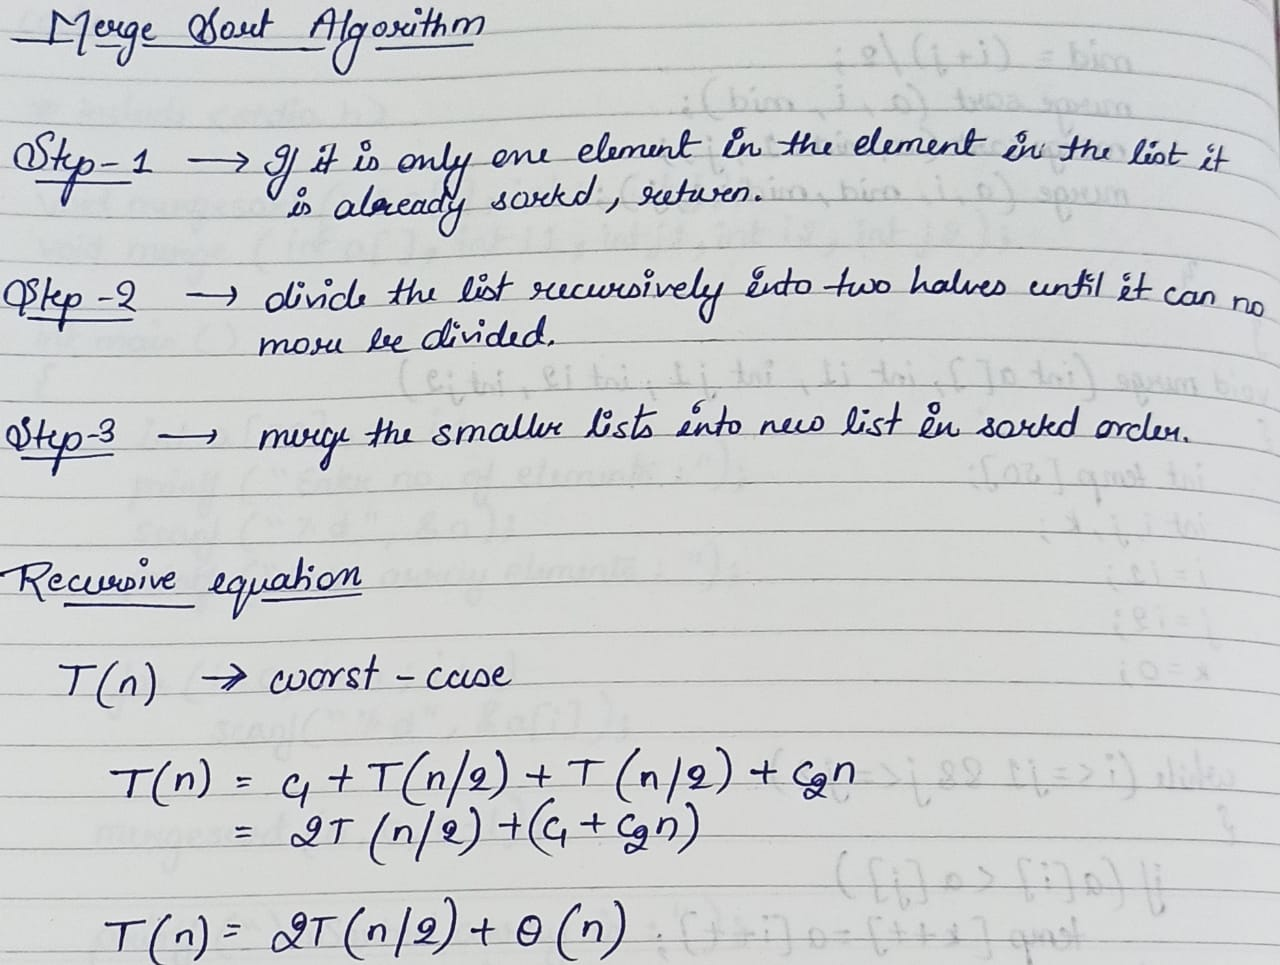 Merge Sort Algorithm
Step-1 → If it is only one element in the element in the list it
is already sorted, return.
Step-2 → divide the list recursively into two halves until it can no
more be divided.
Step-3 → merge the smaller lists into new list in sorted order.
Recursive equation
T(n) → worst-case
T(n) = c₁ + T(n/2) + T(n/2) + c₂n
= 2T(n/2) + (c₁ + c₂n)
T(n) = 2T(n/2) + θ(n)